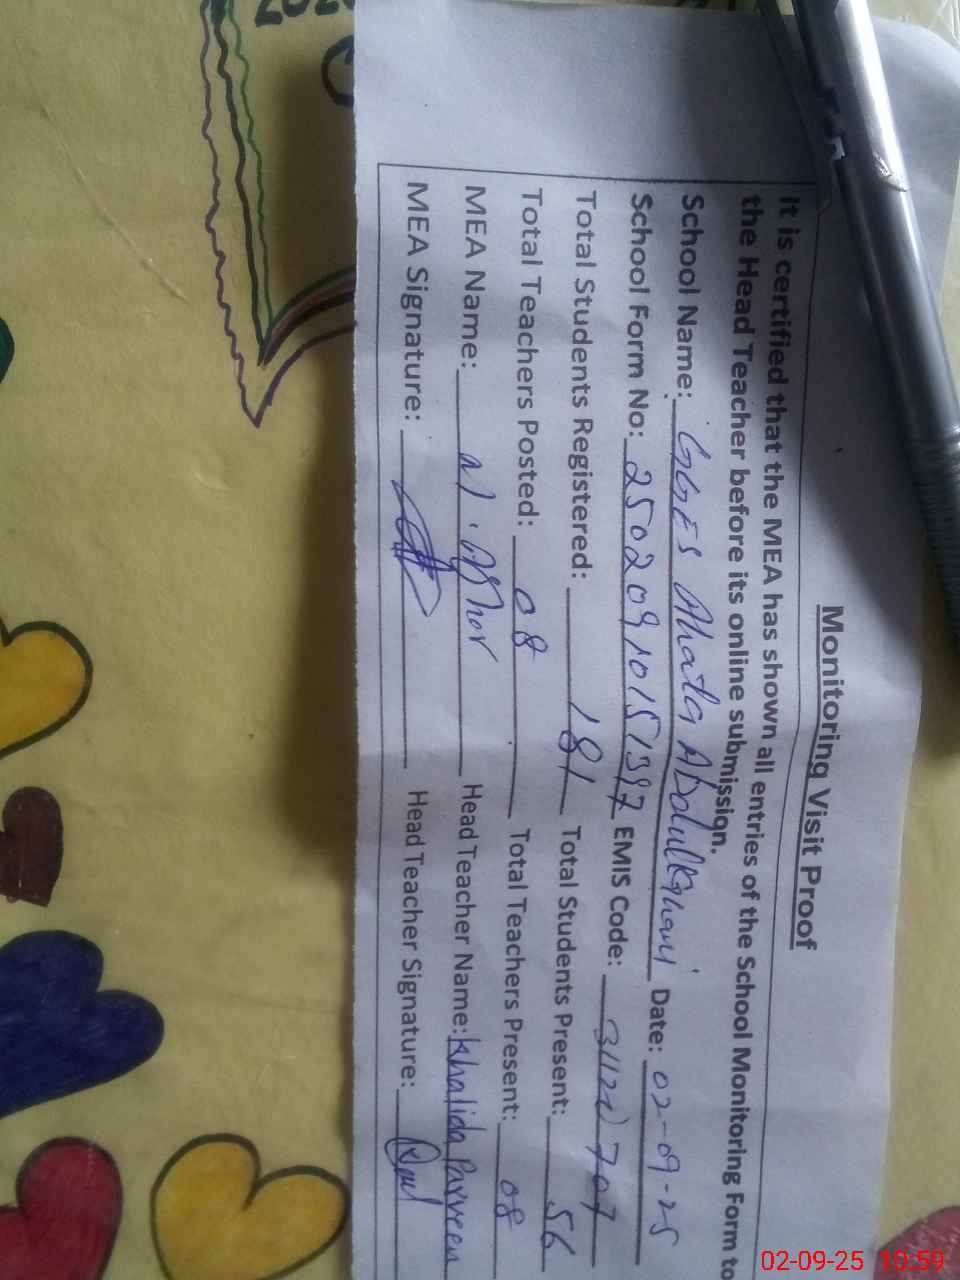 Monitoring Visit Proof
It is certified that the MEA has shown all entries of the School Monitoring Form to
the Head Teacher before its online submission.
School Name: GGES Ahata Abdul Ghani Date: 02-09-25
School Form No: 25020910151397 EMIS Code:
Total Students Registered: 181 Total Students Present: 56
Total Teachers Posted: 08 Total Teachers Present: 08
MEA Name: Head Teacher Name: Khalida Parveen
MEA Signature: Head Teacher Signature:
02-09-25 10:59